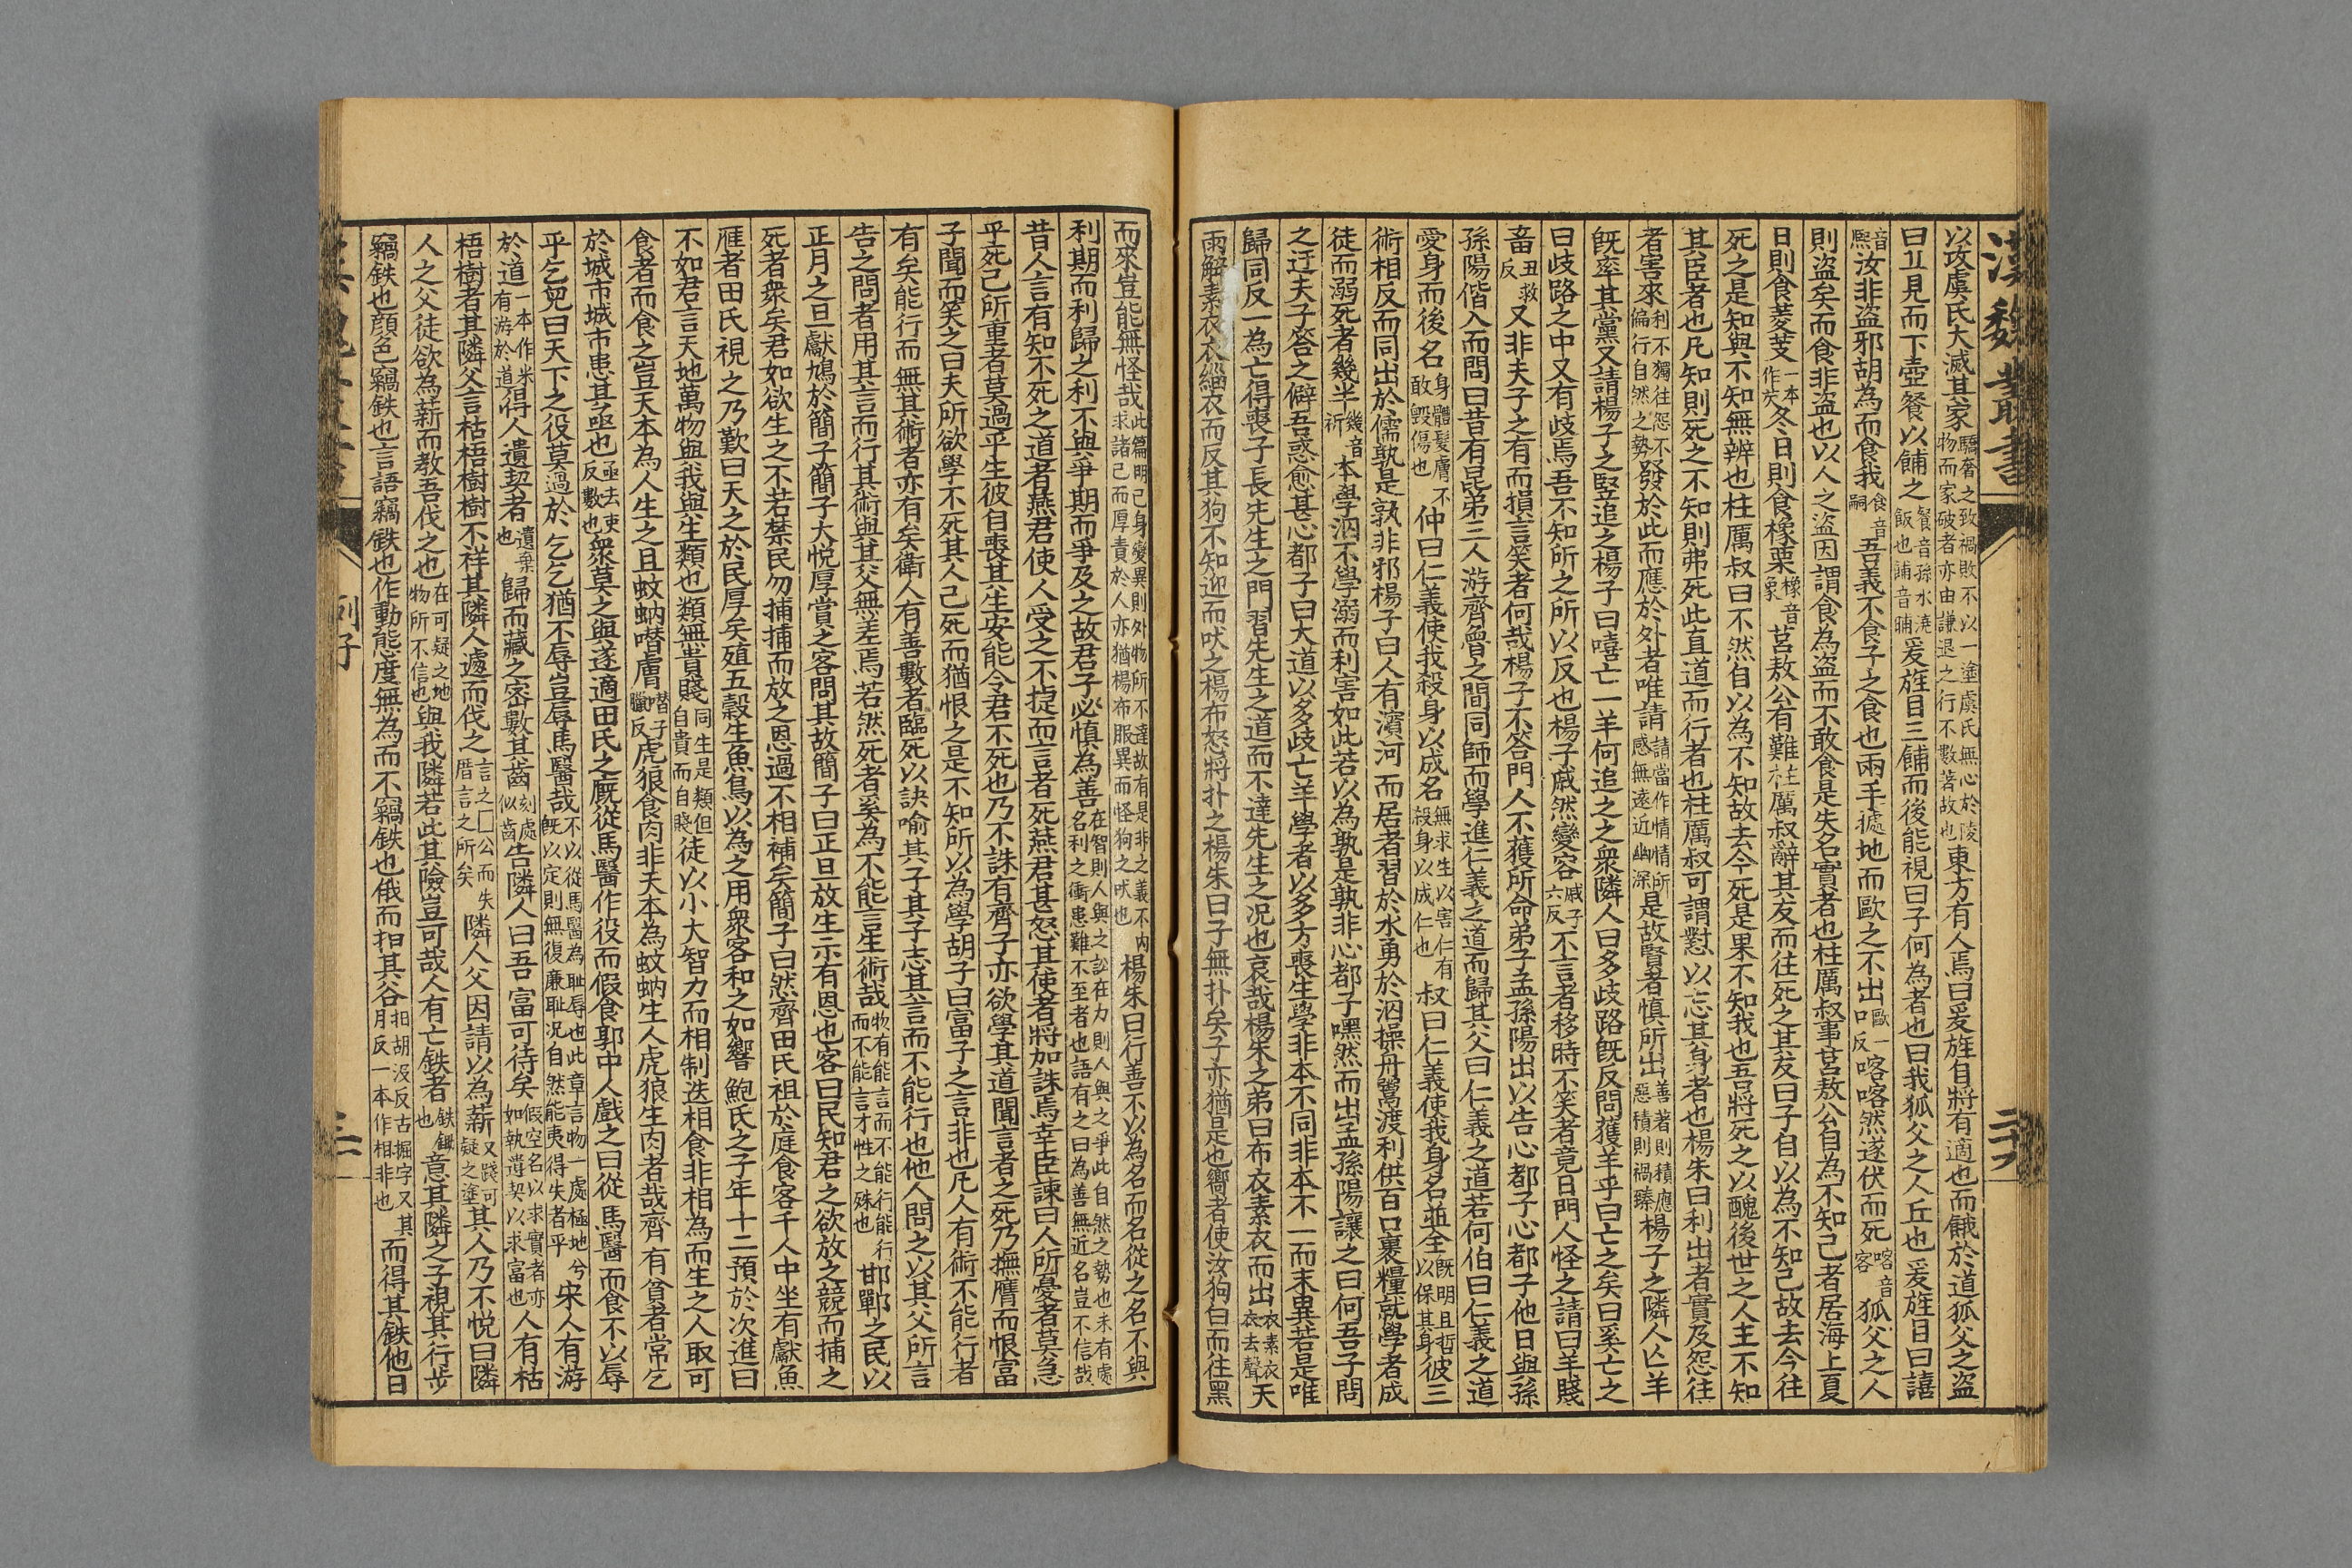 漢魏叢書
二十九
以攻虞氏大滅其家驕奢之致禍敗不以一塗虞氏無心於陵物而家破者亦由謙退之行不著故也東方有人焉曰爰旌目將有適也而餓於道狐父之盜
曰丘見而下壺餐以餔之餐音孫水澆飯也餔音晡爰旌目三餔而後能視曰子何為者也曰我狐父之人丘也爰旌目曰譆
音熙汝非盜邪胡為而食我食音嗣吾義不食子之食也兩手據地而歐之不出歐一口反喀喀然遂伏而死喀音客狐父之人
則盜矣而食非盜也以人之盜因謂食為盜而不敢食是失名實者也柱厲叔事莒敖公自為不知己者居海上夏
日則食菱芰一本作茨冬日則食橡栗橡音象莒敖公有難柱厲叔辭其友而往死之其友曰子自以為不知己故去今往
死之是知與不知無辨也柱厲叔曰不然自以為不知故去今死是果不知我也吾將死之以醜後世之人主不知
其臣者也凡知則死之不知則弗死此直道而行者也柱厲叔可謂懟以忘其身者也楊朱曰利出者實及怨往
者害來利不獨往怨不偏行自然之勢發於此而應於外者唯請請當作情情所感無遠近幽深是故賢者慎所出善著則積應惡積則禍臻楊子之隣人亡羊
既率其黨又請楊子之竪追之楊子曰嘻亡一羊何追之之衆隣人曰多歧路既反問獲羊乎曰亡之矣曰奚亡之
曰歧路之中又有歧焉吾不知所之所以反也楊子戚然變容戚子六反不言者移時不笑者竟日門人怪之請曰羊賤
畜丑救反又非夫子之有而損言笑者何哉楊子不答門人不獲所命弟子孟孫陽出以告心都子心都子他日與孫
孫陽偕入而問曰昔有昆弟三人游齊魯之間同師而學進仁義之道而歸其父曰仁義之道若何伯曰仁義之道
愛身而後名身體髮膚不敢毀傷也仲曰仁義使我殺身以成名無求生以害仁有殺身以成仁也叔曰仁義使我身名並全既明且哲以保其身彼三
術相反而同出於儒孰是孰非邪楊子曰人有濱河而居者習於水勇於泅操舟鬻渡利供百口裹糧就學者成
徒而溺死者幾半幾音祈本學泅不學溺而利害如此若以為孰是孰非心都子嘿然而出孟孫陽讓之曰何吾子問
之迂夫子答之僻吾惑愈甚心都子曰大道以多歧亡羊學者以多方喪生學非本不同非本不一而末異若是唯
歸同反一為亡得喪子長先生之門習先生之道而不達先生之況也哀哉楊朱之弟曰布衣素衣而出衣素衣衣去聲天
雨解素衣衣緇衣而反其狗不知迎而吠之楊布怒將扑之楊朱曰子無扑矣子亦猶是也嚮者使汝狗白而往黑
而來豈能無怪哉此篇明已身變異則外物所不達故有是非之義不內求諸己而厚責於人亦猶楊布服異而怪狗之吠也楊朱曰行善不以為名而名從之名不與
利期而利歸之利不與爭期而爭及之故君子必慎為善在智則人與之訟在力則人與之爭此自然之勢也未有處名利之衝患難不至者也語有之曰為善無近名豈不信哉
昔人言有知不死之道者燕君使人受之不捷而言者死燕君甚怒其使者將加誅焉幸臣諫曰人所憂者莫急
乎死己所重者莫過乎生彼自喪其生安能令君不死也乃不誅有齊子亦欲學其道聞言者之死乃撫膺而恨富
子聞而笑之曰夫所欲學不死其人已死而猶恨之是不知所以為學胡子曰富子之言非也凡人有術不能行者
有矣能行而無其術者亦有矣衛人有善數者臨死以訣喻其子其子志其言而不能行也他人問之以其父所言
告之問者用其言而行其術與其父無差焉若然死者奚為不能言生術哉物有能言而不能行能行而不能言才性之殊也邯鄲之民以
正月之旦獻鳩於簡子簡子大悅厚賞之客問其故簡子曰正旦放生示有恩也客曰民知君之欲放之競而捕之
死者衆矣君如欲生之不若禁民勿捕捕而放之恩過不相補矣簡子曰然齊田氏祖於庭食客千人中坐有獻魚
雁者田氏視之乃歎曰天之於民厚矣殖五穀生魚鳥以為之用衆客和之如響鮑氏之子年十二預於次進曰
不如君言天地萬物與我與生類也類無貴賤同生是類但自貴而自賤徒以小大智力而相制迭相食非相為而生之人取可
食者而食之豈天本為人生之且蚊蚋噆膚噆子臘反虎狼食肉非天本為蚊蚋生人虎狼生肉者哉齊有貧者常乞
於城市城市患其亟也亟去吏反數也衆莫之與遂適田氏之厩從馬醫作役而假食郭中人戲之曰從馬醫而食不以辱
乎乞兒曰天下之役莫過於乞乞猶不辱豈辱馬醫哉不以從馬醫為耻辱也此章言物一處極地既以定則無復廉耻况自然能夷得失者乎宋人有游
於道一本作宋米有游於道得人遺契者遺棄也歸而藏之密數其齒刻處似齒告隣人曰吾富可待矣假空名以求實者亦如執遺契以求富也人有枯
梧樹者其隣父言枯梧樹樹不祥其隣人遽而伐之言之□公而失厝言之所矣隣人父因請以為薪又踐可疑之塗其人乃不悅曰隣
人之父徒欲為薪而教吾伐之也在可疑之地物所不信也與我隣若此其險豈可哉人有亡鈇者鈇鉞也意其隣之子視其行步
竊鈇也顔色竊鈇也言語竊鈇也作動態度無為而不竊鈇也俄而抇其谷抇胡汲反古掘字又其月反一本作相非也而得其鈇他日
列子